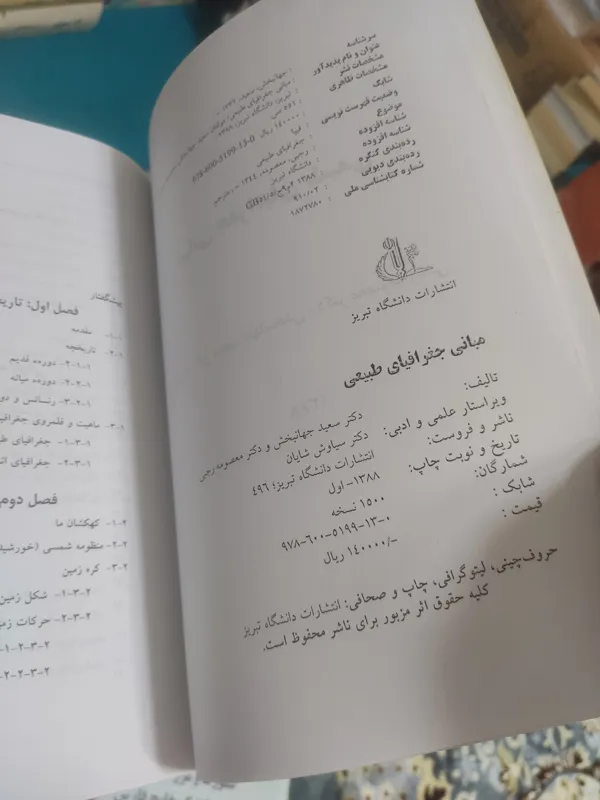 سرشناسه : جهانبخش، سعید،
عنوان و نام پدیدآور : مبانی جغرافیای طبیعی/
مشخصات نشر : تبریز: دانشگاه تبریز، ۱۳۸۸
مشخصات ظاهری : ص.
شابک : ۱۴۰۰۰۰ ریال 978-600-5199-13-0
وضعیت فهرست نویسی : فیپا
موضوع : جغرافیای طبیعی
شناسه افزوده : رجبی، معصومه، ۱۳۴۴ -
شناسه افزوده : دانشگاه تبریز
رده‌بندی کنگره : ۱۳۸۸
رده‌بندی دیویی : ۹۱۰/۰۲
شماره کتابشناسی ملی : ۱۸۷۲۷۸۰
انتشارات دانشگاه تبریز
مبانی جغرافیای طبیعی
تالیف: دکتر سعید جهانبخش و دکتر معصومه رجبی
ویراستار علمی و ادبی: دکتر سیاوش شایان
ناشر و فروست: انتشارات دانشگاه تبریز؛ ۴۹۶
تاریخ و نوبت چاپ: ۱۳۸۸- اول
شمارگان: ۱۵۰۰ نسخه
شابک : ۹۷۸-۶۰۰-۵۱۹۹-۱۳-۰
قیمت : ۱۴۰۰۰۰/- ریال
حروف‌چینی، لیتوگرافی، چاپ و صحافی: انتشارات دانشگاه تبریز
کلیه حقوق اثر مزبور برای ناشر محفوظ است.
پیشگفتار
فصل اول:
۱-۱- مقدمه
۲-۱- تاریخچه
۱-۲-۱- دوره قدیم
۲-۲-۱- دوره میانه
۳-۲-۱- رنسانس و
۳-۱- ماهیت و قلمروی
۱-۳-۱- جغرافیای
۲-۳-۱- جغرافیای
فصل دوم
۱-۲- کهکشان ما
۲-۲- منظومه شمسی
۳-۲- کره زمین
۱-۳-۲- شکل زمین
۲-۳-۲- حرکات
۱-۲-۳-۲
۲-۲-۳-۲